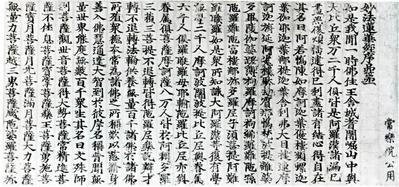 常樂院公用
妙法蓮華經序品第一
如是我聞一時佛住王舍城耆闍崛山中與
大比丘衆万二千人俱皆是阿羅漢諸漏已
盡無復煩惱逮得己利盡諸有結心得自在
其名曰阿若憍陳如摩訶迦葉優樓頻螺迦
葉伽耶迦葉那提迦葉舍利弗大目揵連摩
訶迦旃延阿㝹樓馱劫賓那憍梵波提離婆
多畢陵伽婆蹉薄拘羅摩訶拘絺羅難陀孫
陀羅難陀富樓那彌多羅尼子須菩提阿難
羅睺羅如是衆所知識大阿羅漢等復有學
無學二千人摩訶波闍波提比丘尼與眷屬
六千人俱羅睺羅母耶輸陀羅比丘尼亦與
眷屬俱菩薩摩訶薩八万人皆於阿耨多羅
三藐三菩提不退轉皆得陀羅尼樂說辯才
轉不退轉法輪供養無量百千諸佛於諸佛
所殖衆德本常為諸佛之所稱歎以慈脩身
善入佛慧通達大智到於彼岸名稱普聞無
量世界能度無數百千衆生其名曰文殊師
利菩薩觀世音菩薩得大勢菩薩常精進菩
薩不休息菩薩寶掌菩薩藥王菩薩勇施菩
薩寶月菩薩月光菩薩滿月菩薩大力菩薩
無量力菩薩越三界菩薩跋陀婆羅菩薩彌